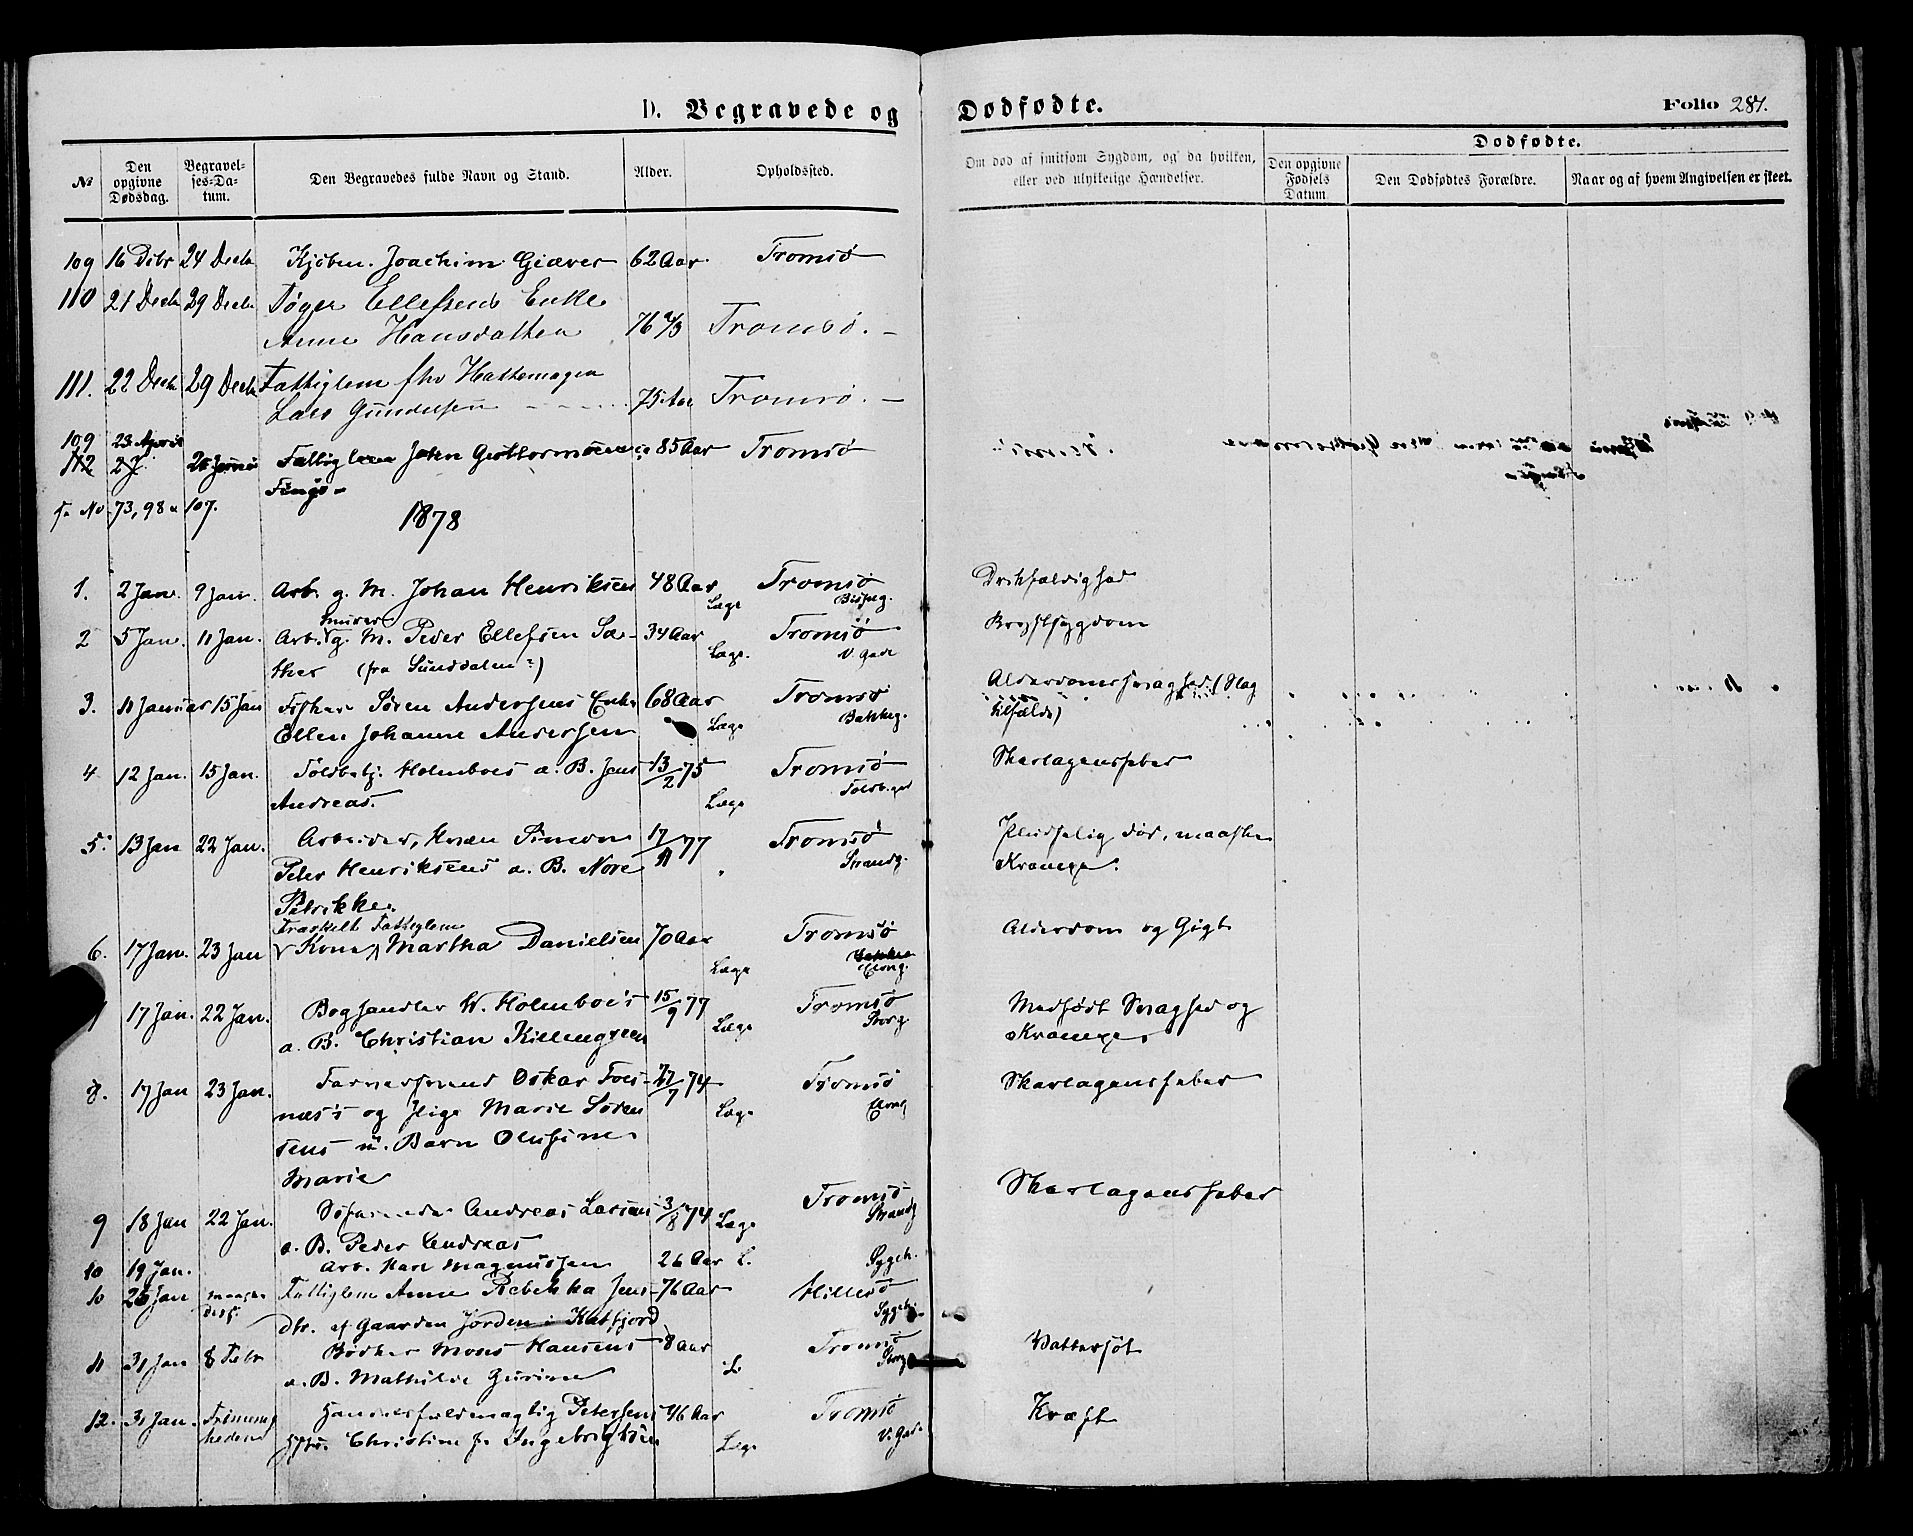 D. Begravede og Dødfødte. Folio 281.
№ Den opgivne Dødsdag. Begravelses-Datum. Den Begravedes fulde Navn og Stand. Alder. Opholdssted. Om død af smitsom Sygdom, og da hvilken, eller ved ulykkelige Hændelser. Den opgivne Fødsels Datum Dødfødte. Den Dødfødtes Forældre. Naar og af hvem Angivelsen er skeet.
109 16 Dcbr 24 Decb Kjøbm. Joachim Giæver 62 Aar Tromsø
110 21 Decb 29 Decb Tøger Ellefsens Enke
Anne Hansdatter 76 Tromsø. –
111. 22 Decb 29 Decb Fattiglem fhv Hattemager
Lars Gundersen 75 Aar Tromsø. –
109 23 April
112 2 J. Fattiglem John Guttormsen 85 Aar Tromsø
73, 98 107.
1878
1. 2 Jan. 9 Jan. Arb. g. M. Johan Henriksen 48 Aar Læge Tromsø Drikfældighed
2 5 Jan. 11 Jan. Arb. g. M. Peder Ellefsen Sæ- 34 Aar Læge. Tromsø V. Gade Brystsygdom
Murer
ther (fra Sunddalen?)
3. 11 Januar 15 Jan Fisker Søren Andersens Enke 68 Aar Tromsø Bakkeg. Alderdomssvaghed (Slag
Ellen Johanne Andersen Læge tilfælde)
4 12 Jan. 15 Jan. Toldbetj. Holmboes a. B. Jens 13/2 75 Tromsø Toldb.gd Skarlagensfeber
Andreas. Læge
5. 13 Jan 22 Jan. Arbeider, Kvæn Simon 17/11 77 Tromsø Strandg. Pludselig død, maaske
Peter Henriksens a. B. Nore Krampe.
Petrikke.
Fraskilt Fattiglem
6. 17 Jan. 23 Jan Kone Martha Danielsen 70 Aar Læge Tromsø Elveg. Alderdom og Gigt
17 Jan. 22 Jan. Boghandler W. Holmboe's 15/9 77 Læge Tromsø Storg. Medfødt Svaghed og
a. B. Christian Killengreen Krampe.
8. 17 Jan 23 Jan. Farversvend Oskar Foss- /7 74 Læge Tromsø Elveg Skarlagensfeber
næs's og Pige Marie Søren
sens u. Barn Olufine
Marie
9 18 Jan 22 Jan. Søfarende Andreas Larsens 3/8 74 Læge Tromsø Strandg Skarlagensfeber
a. B. Peder Andreas
10 19 Jan. Arb. Karl Magnussen 26 Aar L. Sygeh.
10 25 Jan Fattiglem Anne Rebekka Jens- 76 Aar Hillesø Sygeh.
dtr. af Gaarden Jorden i Katfjord
11 31 Jan 8 Febr Bødker Mons Hansens 8 Aar L. Tromsø Storg Vattersot
a. B. Mathilde Gurine
12. 31 Jan. Handelsfuldmægtig Petersens 46 Aar Læge Tromsø V. Gade Kræft
Hstr. Christine f. Ingebrigtsen